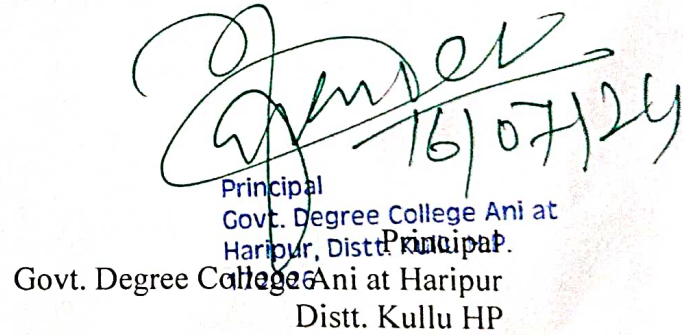 16/07/24
Principal
Govt. Degree College Ani at
Haripur, Distt. Kullu H.P.
172026
Principal
Govt. Degree College Ani at Haripur
Distt. Kullu HP